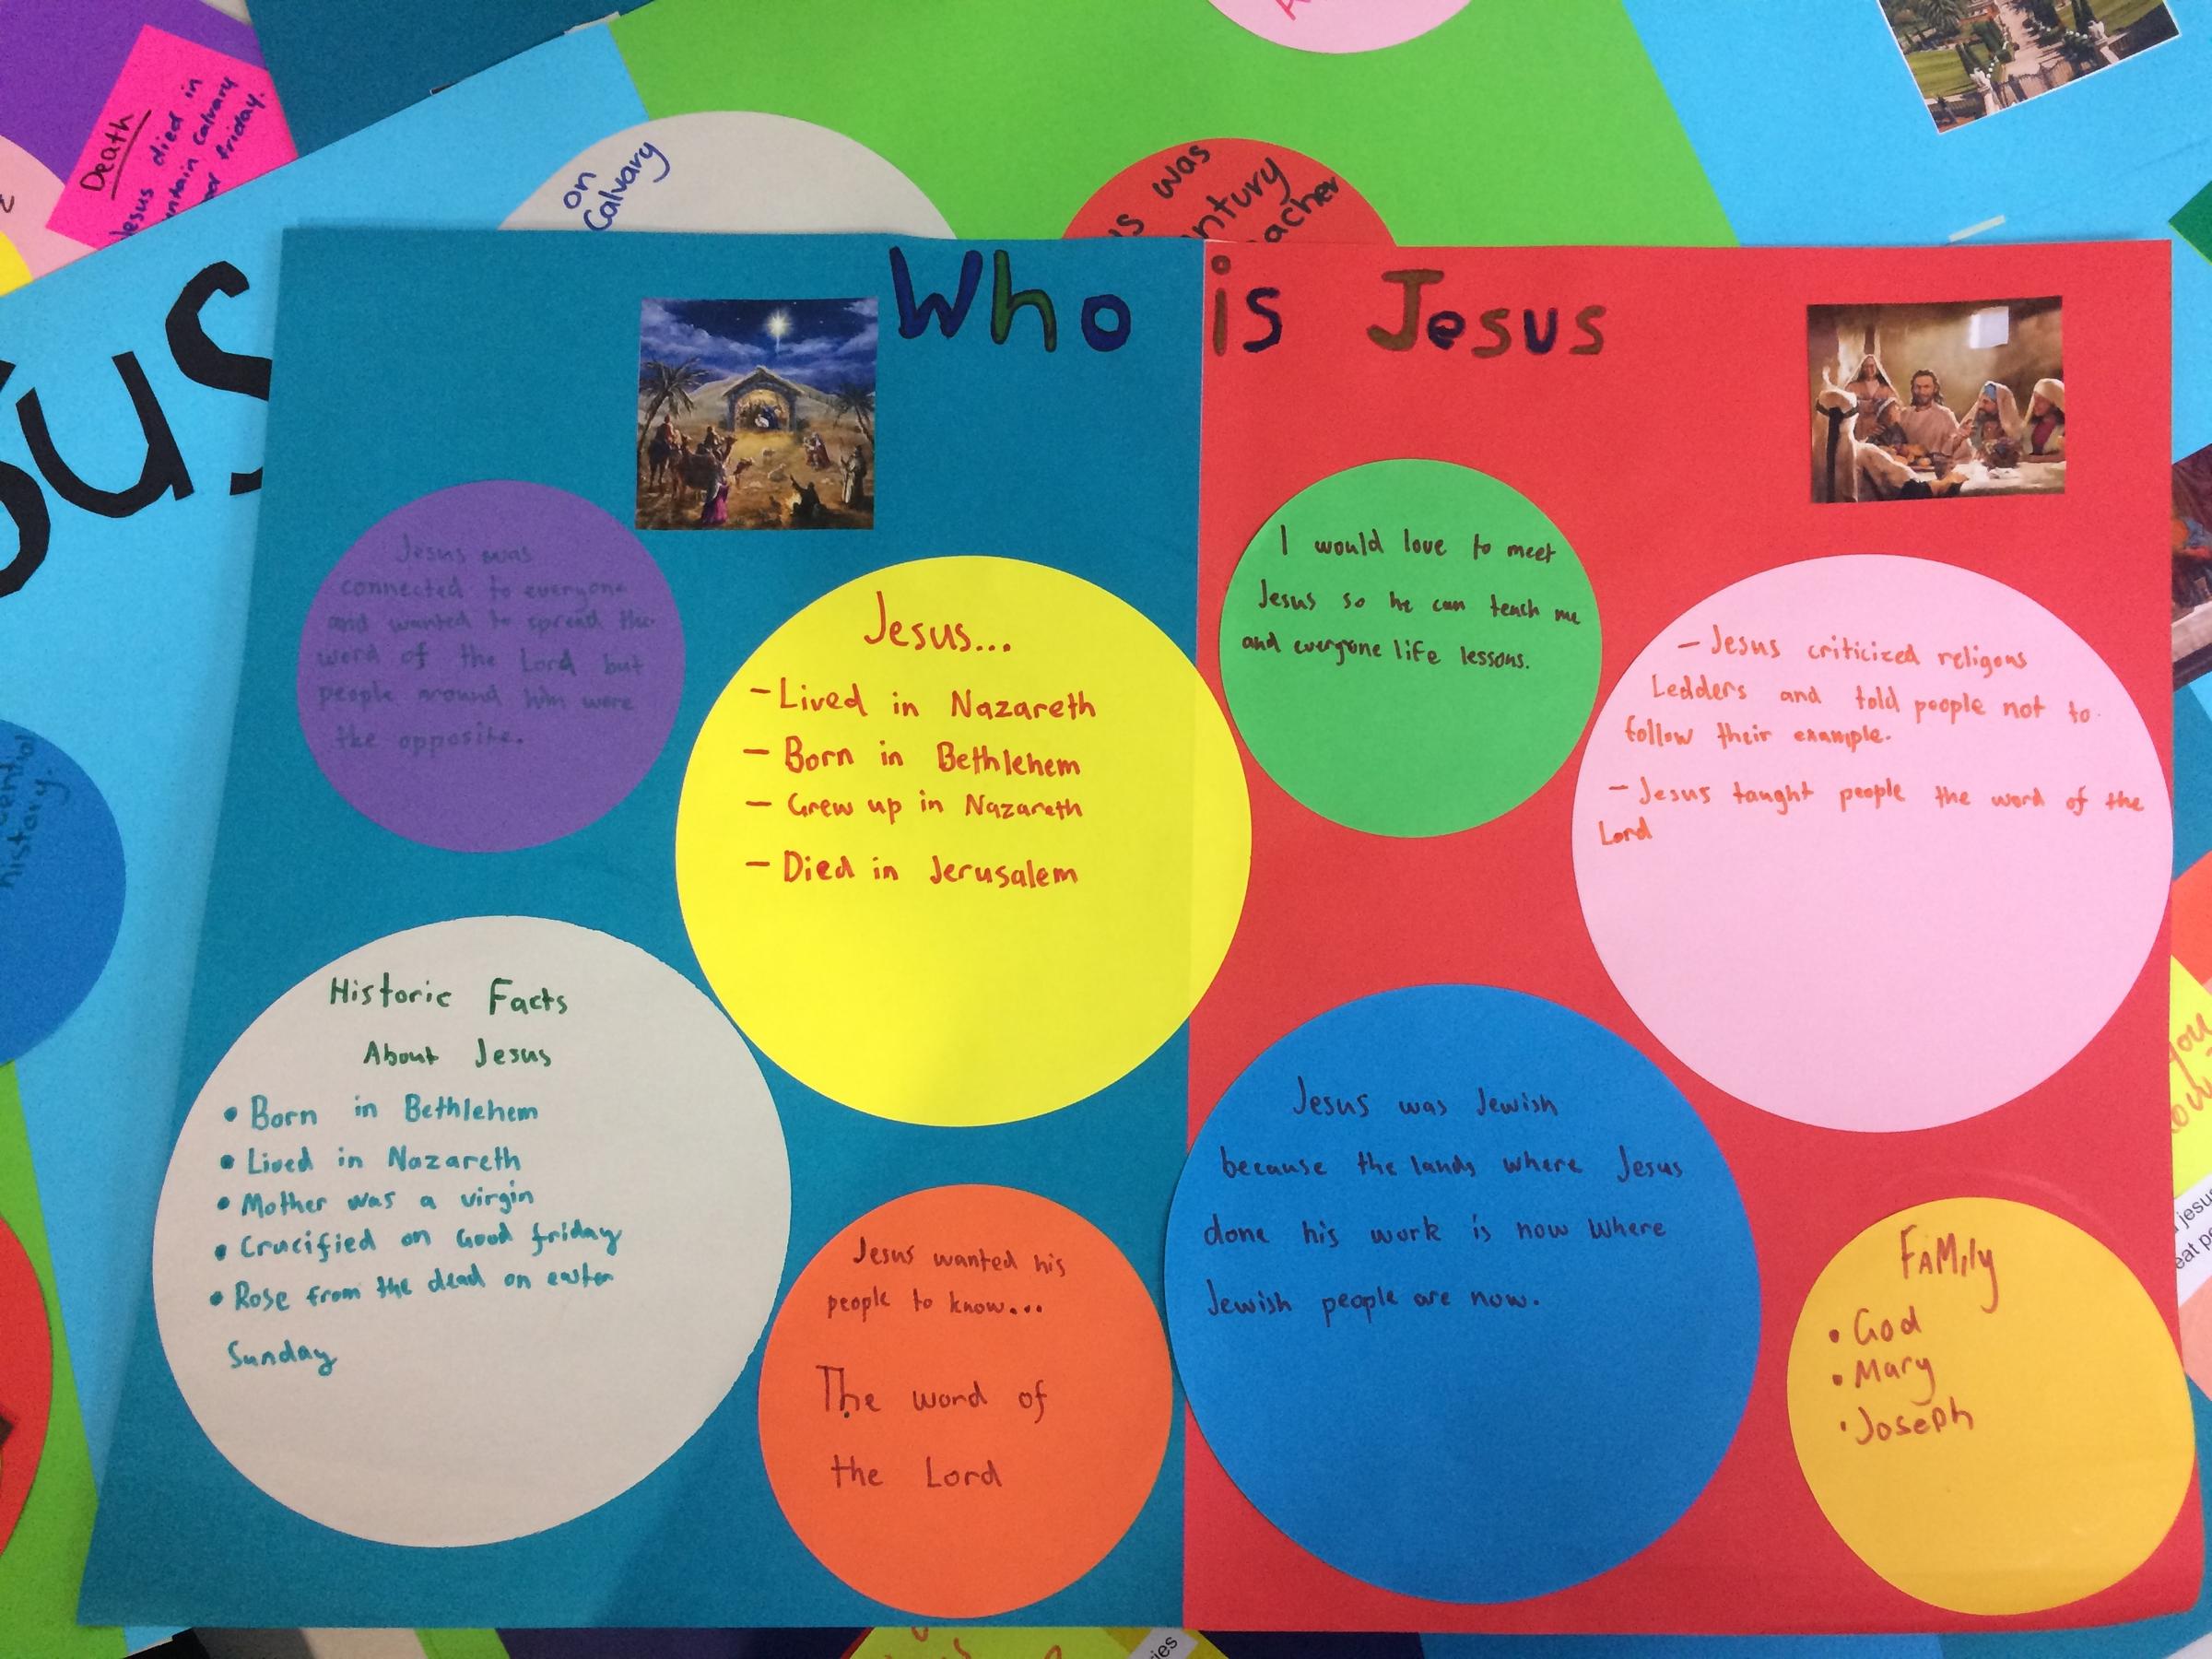 Death
Jesus died in
friday.
on
Calvary
was
sus
Who is Jesus
Jesus was
connected to everyone
and wanted to spread the
word of the Lord but
people around him were
the opposite.
Jesus...
- Lived in Nazareth
- Born in Bethlehem
- Grew up in Nazareth
- Died in Jerusalem
I would love to meet
Jesus so he can teach me
and everyone life lessons.
- Jesus criticized religons
Ledders and told people not to
follow their example.
- Jesus taught people the word of the
Lord
Historic Facts
About Jesus
• Born in Bethlehem
• Lived in Nazareth
• Mother was a virgin
• Crucified on Good friday
• Rose from the dead on easter
Sunday
Jesus wanted his
people to know...
The word of
the Lord
Jesus was Jewish
because the lands where Jesus
done his work is now where
Jewish people are now.
FaMily
• God
• Mary
• Joseph
history.
you